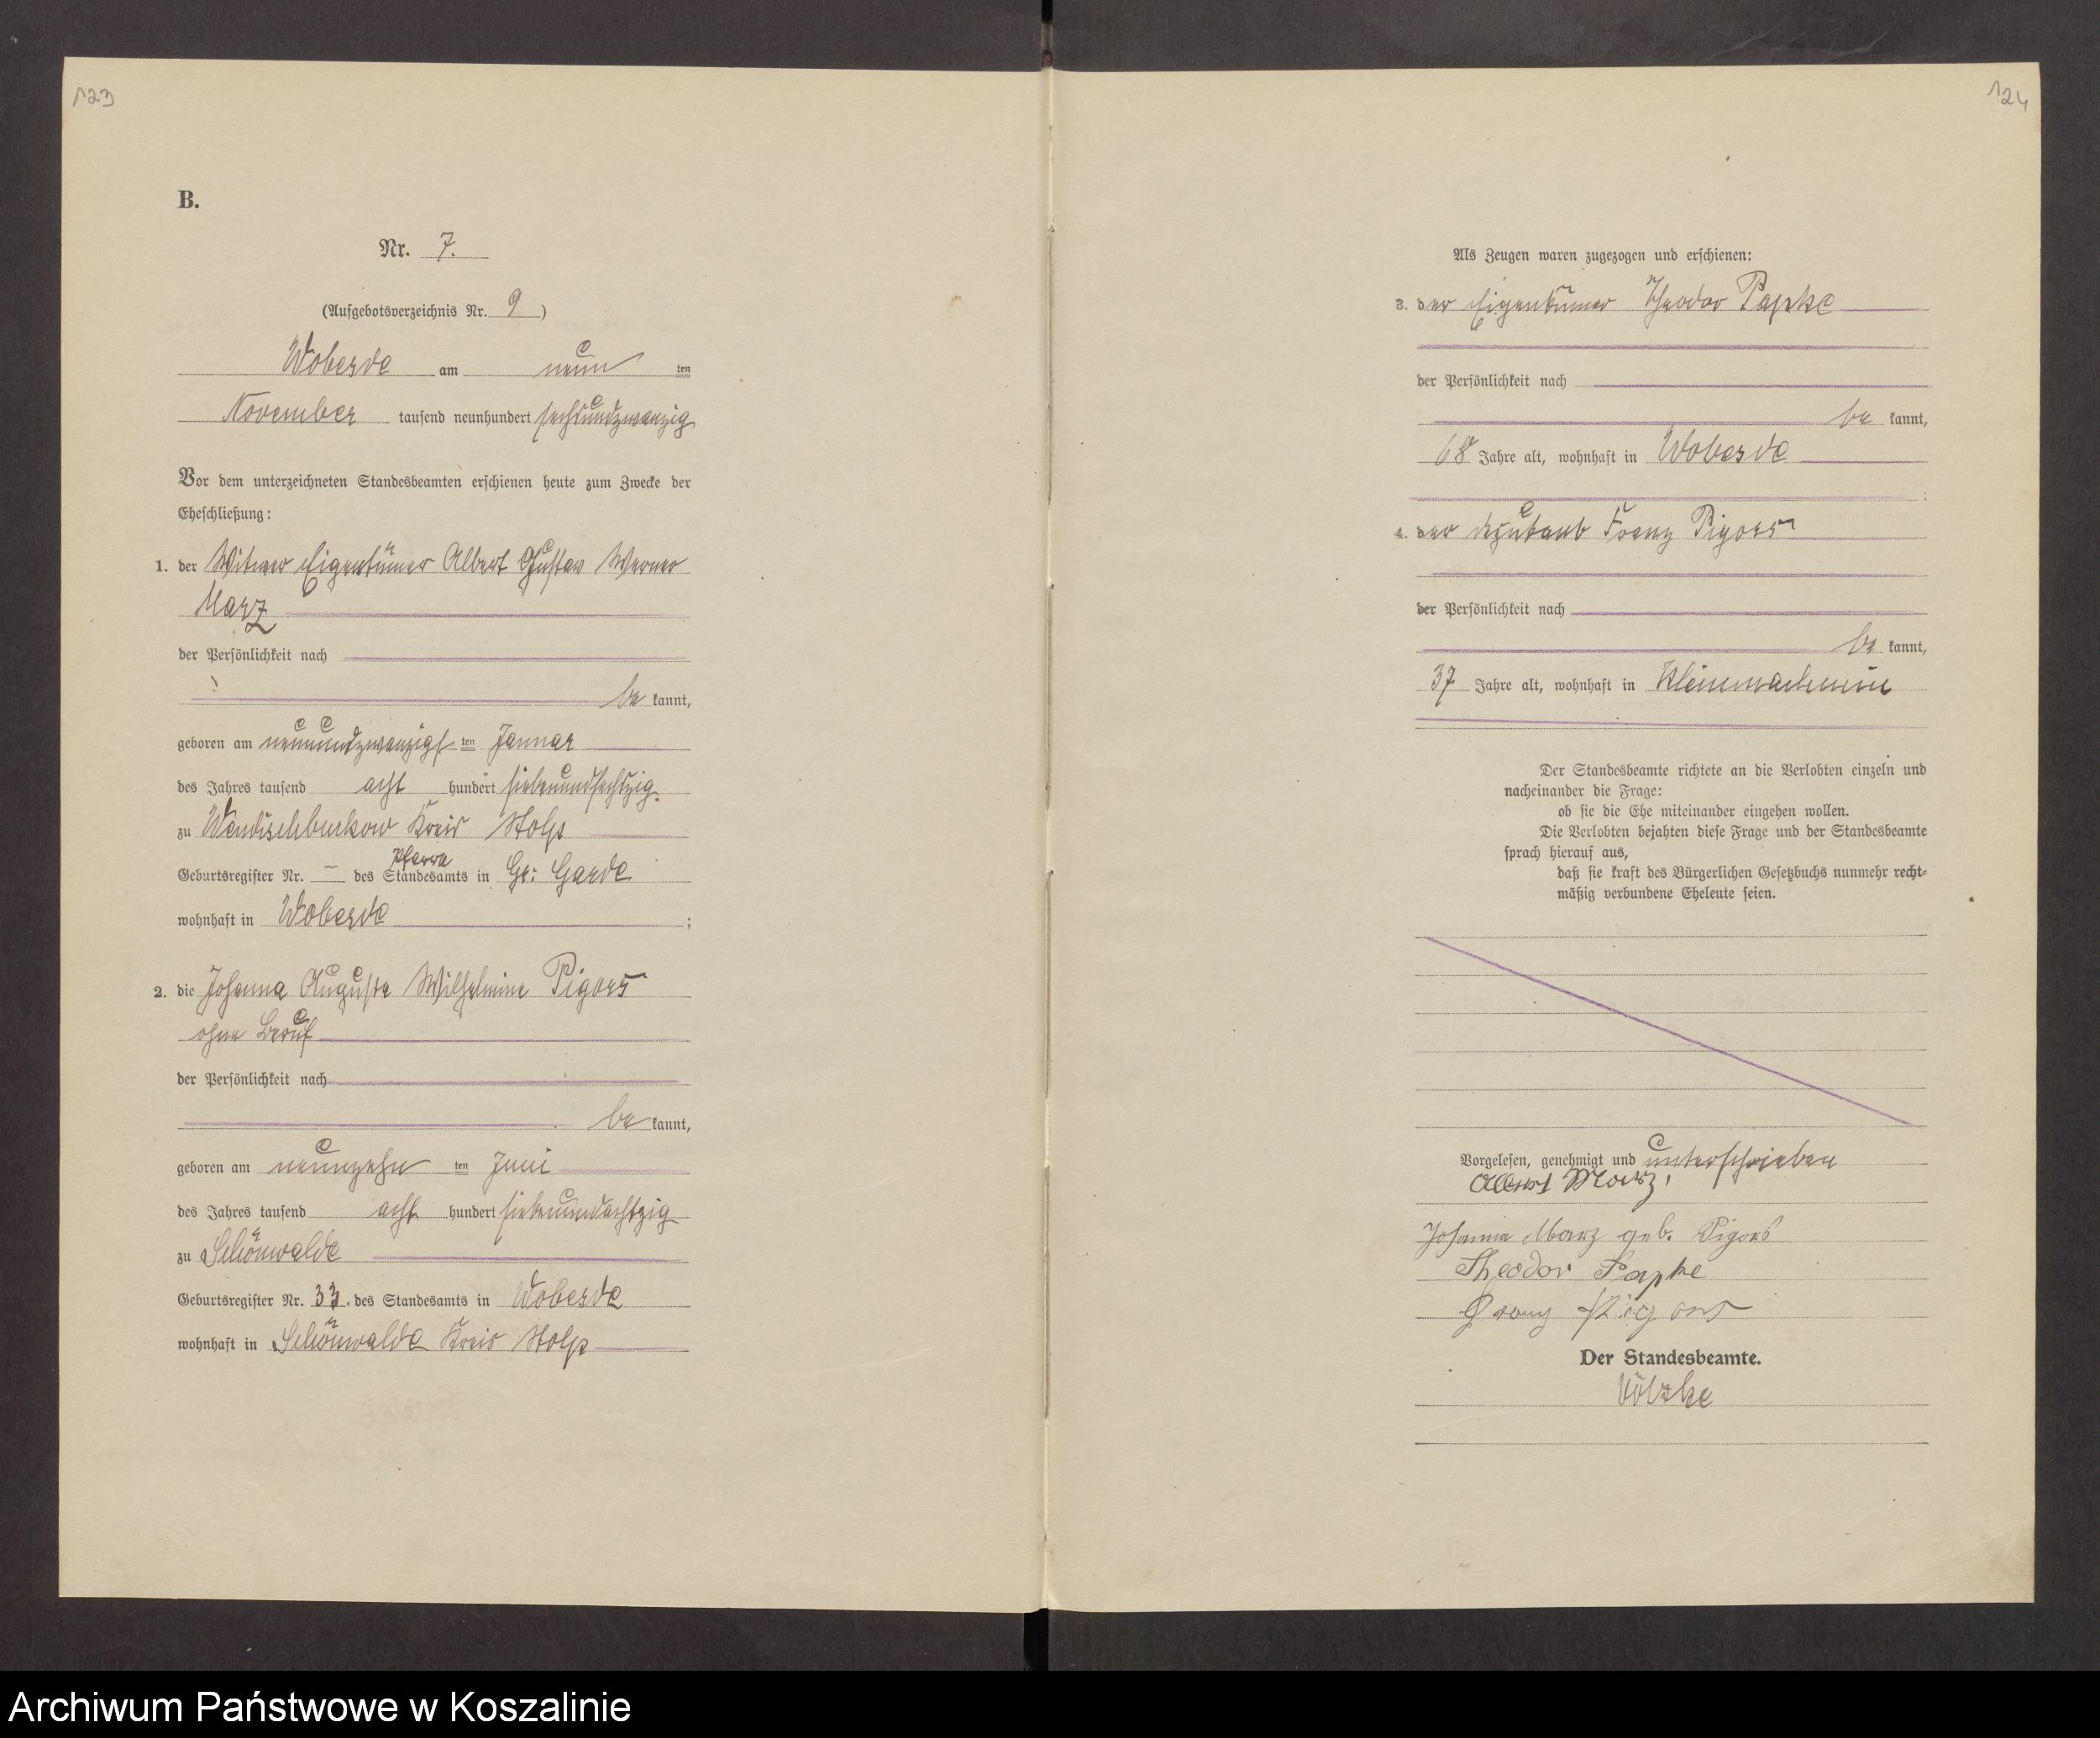 123
B.
Nr. 7.
(Aufgebotsverzeichnis Nr. 9)
Wobesde am neun ten
November tausend neunhundert sechsundzwanzig
Vor dem unterzeichneten Standesbeamten erschienen heute zum Zwecke der
Eheschließung:
1. der Witwer Eigentümer Albert Gustav Werner
Marz
der Persönlichkeit nach
be kannt,
geboren am neunundzwanzigs ten Januar
des Jahres tausend acht hundert siebenundsechzig
zu Wendischbuckow Kreis Stolp
Pfarre
Geburtsregister Nr. — des Standesamts in Gr: Garde
wohnhaft in Wobesde ;
2. die Johanna Auguste Wilhelmine Pigors
ohne Beruf
der Persönlichkeit nach
be kannt,
geboren am neunzehn ten Juni
des Jahres tausend acht hundert siebenundachtzig
zu Schönwalde
Geburtsregister Nr. 33. des Standesamts in Wobesde
wohnhaft in Schönwalde Kreis Stolp
124
Als Zeugen waren zugezogen und erschienen:
3. der Eigentümer Theodor Papke
der Persönlichkeit nach
be kannt,
68 Jahre alt, wohnhaft in Wobesde
;
4. der Deputant Franz Pigors
der Persönlichkeit nach
be kannt,
37 Jahre alt, wohnhaft in Kleinmachmin
Der Standesbeamte richtete an die Verlobten einzeln und
nacheinander die Frage:
ob sie die Ehe miteinander eingehen wollen.
Die Verlobten bejahten diese Frage und der Standesbeamte
sprach hierauf aus,
daß sie kraft des Bürgerlichen Gesetzbuchs nunmehr recht-
mäßig verbundene Eheleute seien.
Vorgelesen, genehmigt und unterschrieben
Albert Marz.
Johanna Marz geb. Pigors
Theodor Papke
Franz Pigors
Der Standesbeamte.
Völzke
Archiwum Państwowe w Koszalinie